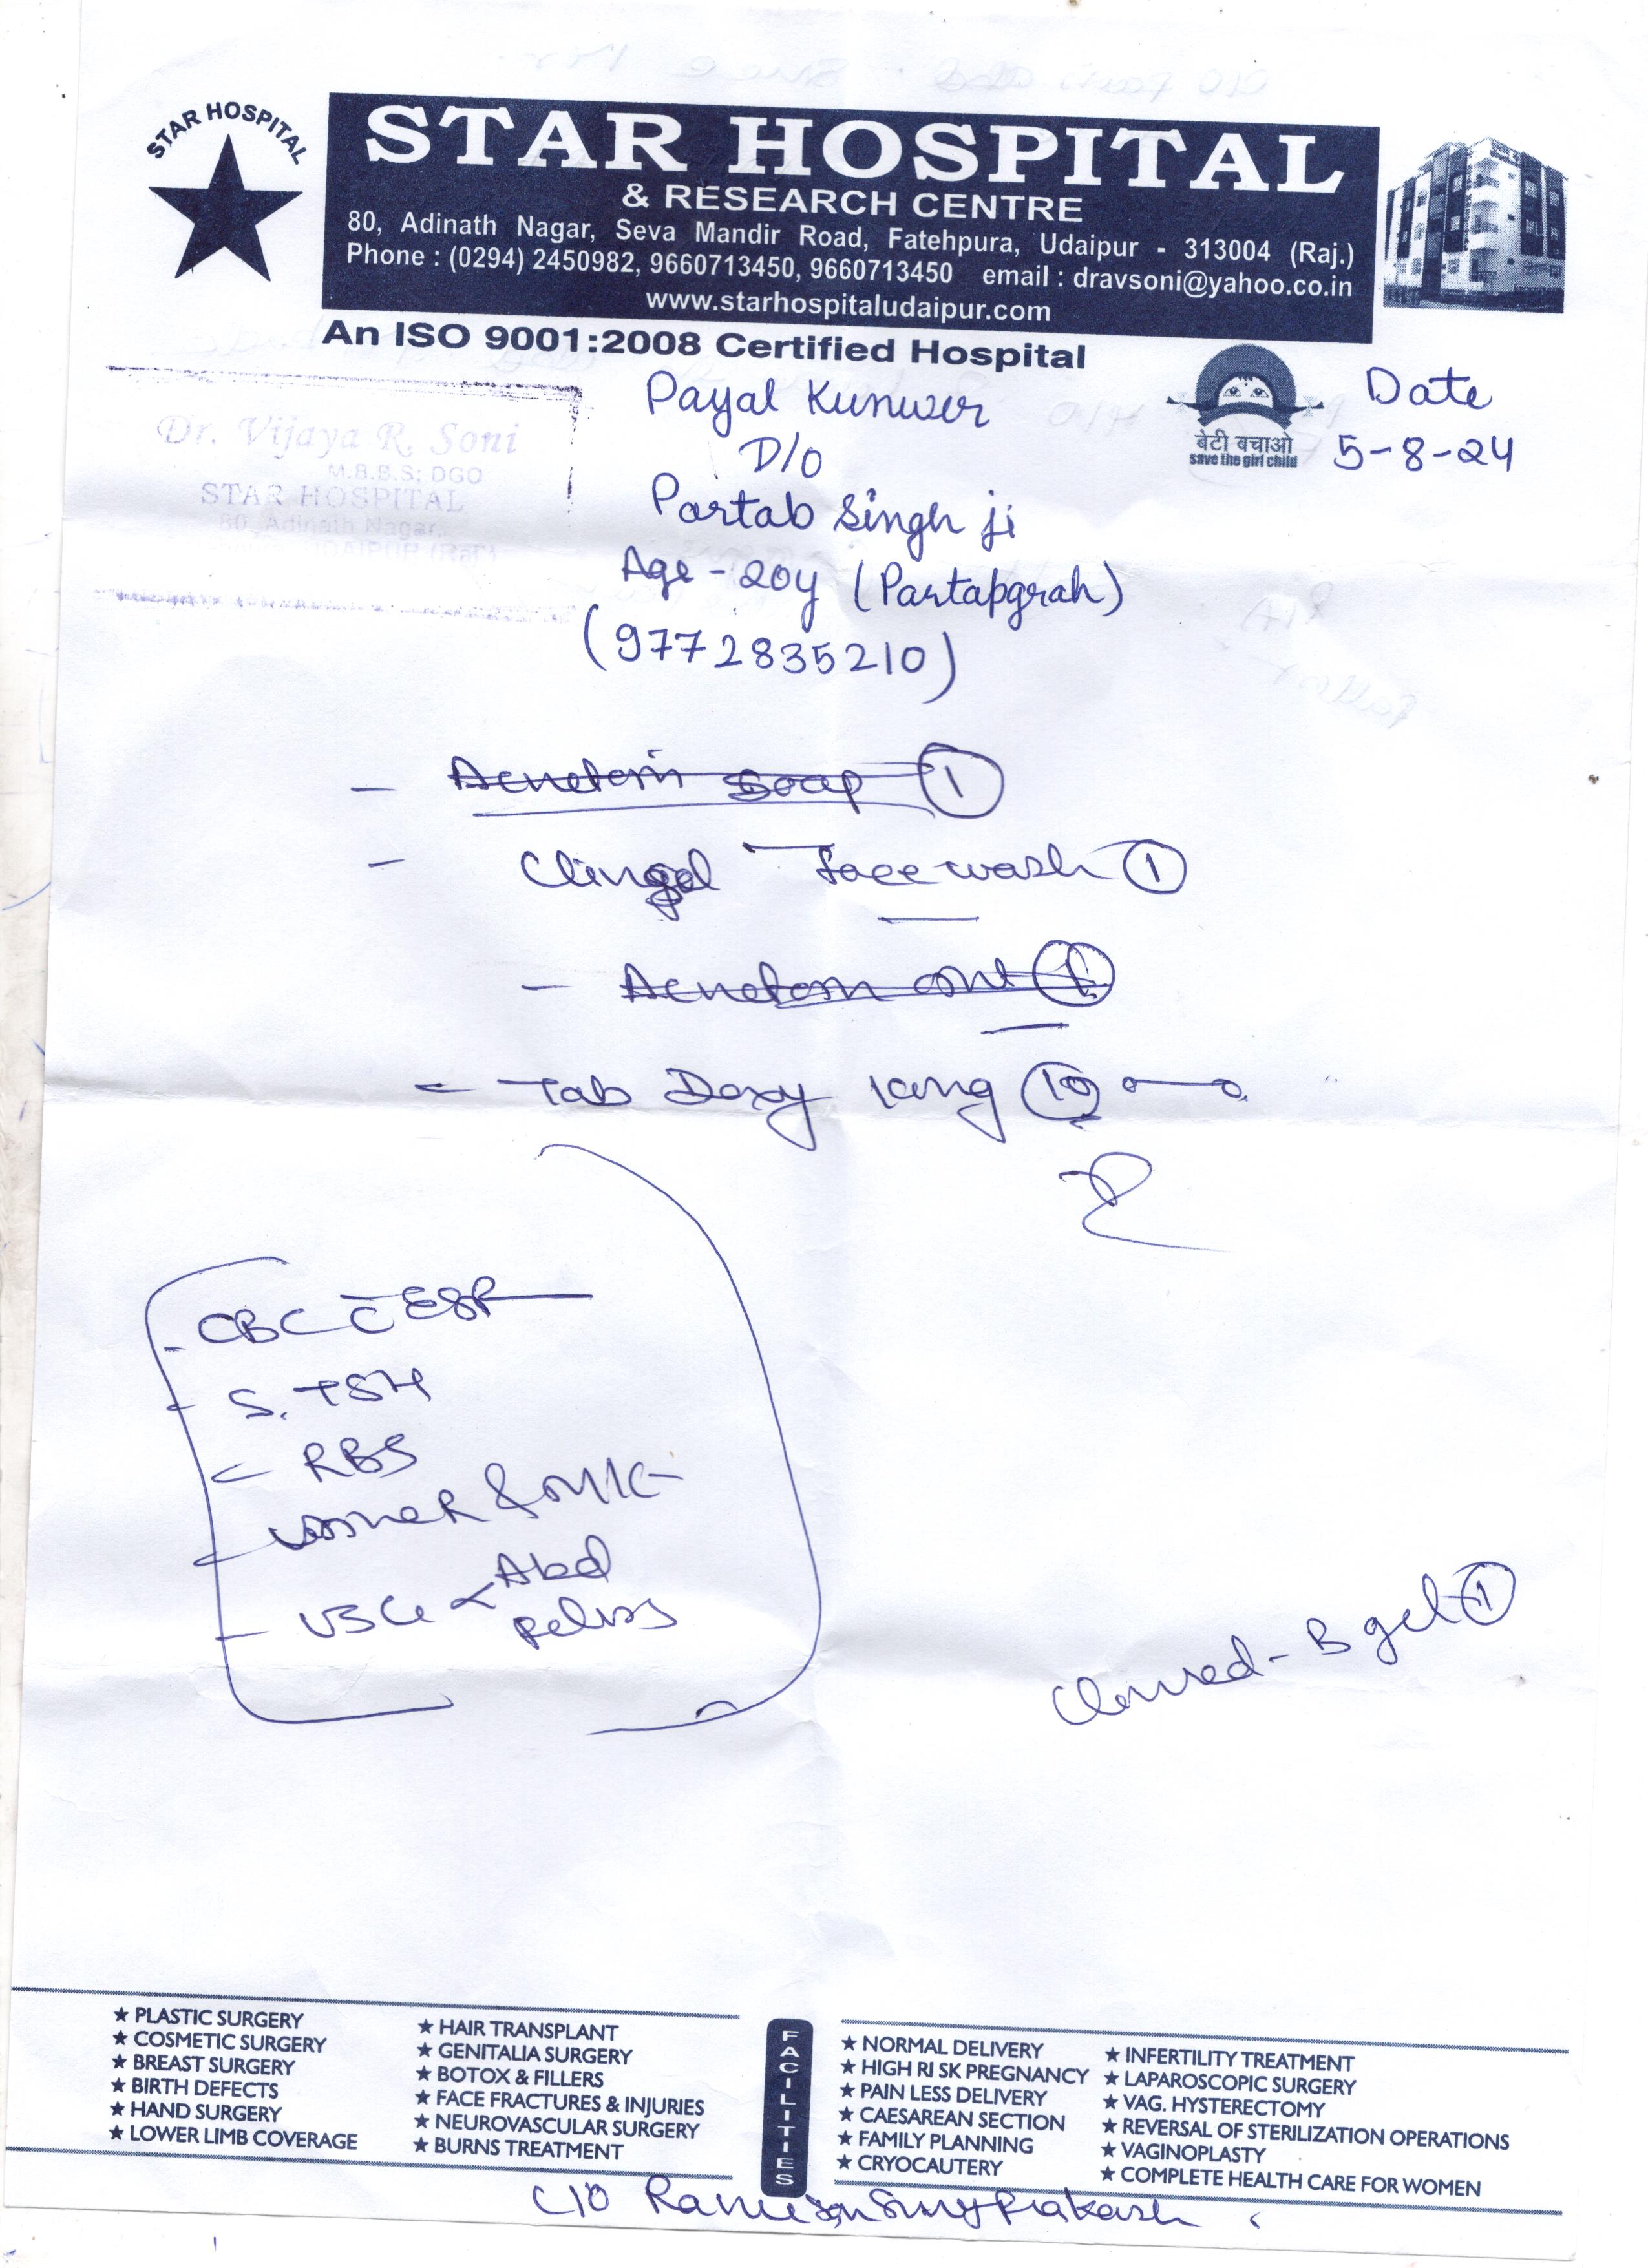 STAR HOSPITAL
STAR HOSPITAL
& RESEARCH CENTRE
80, Adinath Nagar, Seva Mandir Road, Fatehpura, Udaipur - 313004 (Raj.)
Phone : (0294) 2450982, 9660713450, 9660713450 email : dravsoni@yahoo.co.in
www.starhospitaludaipur.com
An ISO 9001:2008 Certified Hospital
बेटी बचाओ
save the girl child
Date
5-8-24
Dr. Vijaya R. Soni
M.B.B.S; DGO
STAR HOSPITAL
80, Adinath Nagar,
UDAIPUR (Raj.)
Payal Kunwer
D/O
Partab Singh ji
Age - 20y (Partapgrah)
(9772835210)
- soap 1
- Face wash 1
- Tab Doxy 10
- CBC C̄ ESR
- S. TSH
- RBS
- R & M/C
- USG < Abd
Pelvis
- B gel 1
FACILITIES
★ PLASTIC SURGERY
★ COSMETIC SURGERY
★ BREAST SURGERY
★ BIRTH DEFECTS
★ HAND SURGERY
★ LOWER LIMB COVERAGE
★ HAIR TRANSPLANT
★ GENITALIA SURGERY
★ BOTOX & FILLERS
★ FACE FRACTURES & INJURIES
★ NEUROVASCULAR SURGERY
★ BURNS TREATMENT
★ NORMAL DELIVERY
★ HIGH RI SK PREGNANCY
★ PAIN LESS DELIVERY
★ CAESAREAN SECTION
★ FAMILY PLANNING
★ CRYOCAUTERY
★ INFERTILITY TREATMENT
★ LAPAROSCOPIC SURGERY
★ VAG. HYSTERECTOMY
★ REVERSAL OF STERILIZATION OPERATIONS
★ VAGINOPLASTY
★ COMPLETE HEALTH CARE FOR WOMEN
C/O